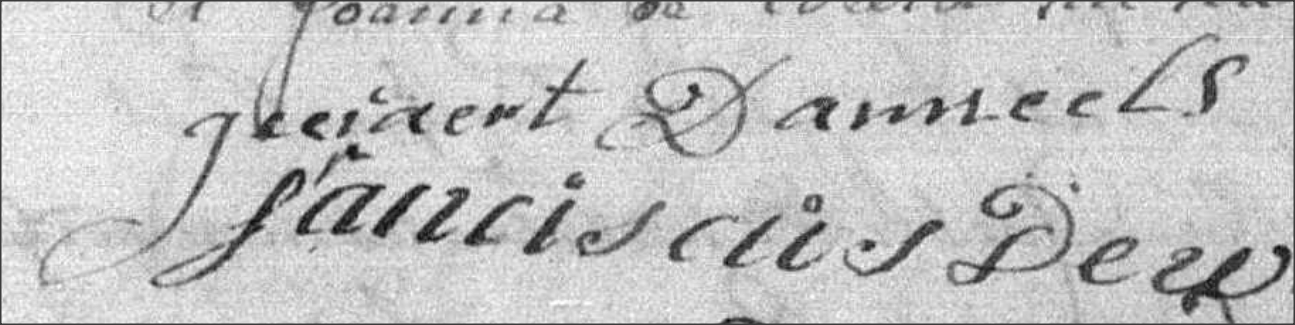 et joanna de
geeraert Danneels
franciscus Derk